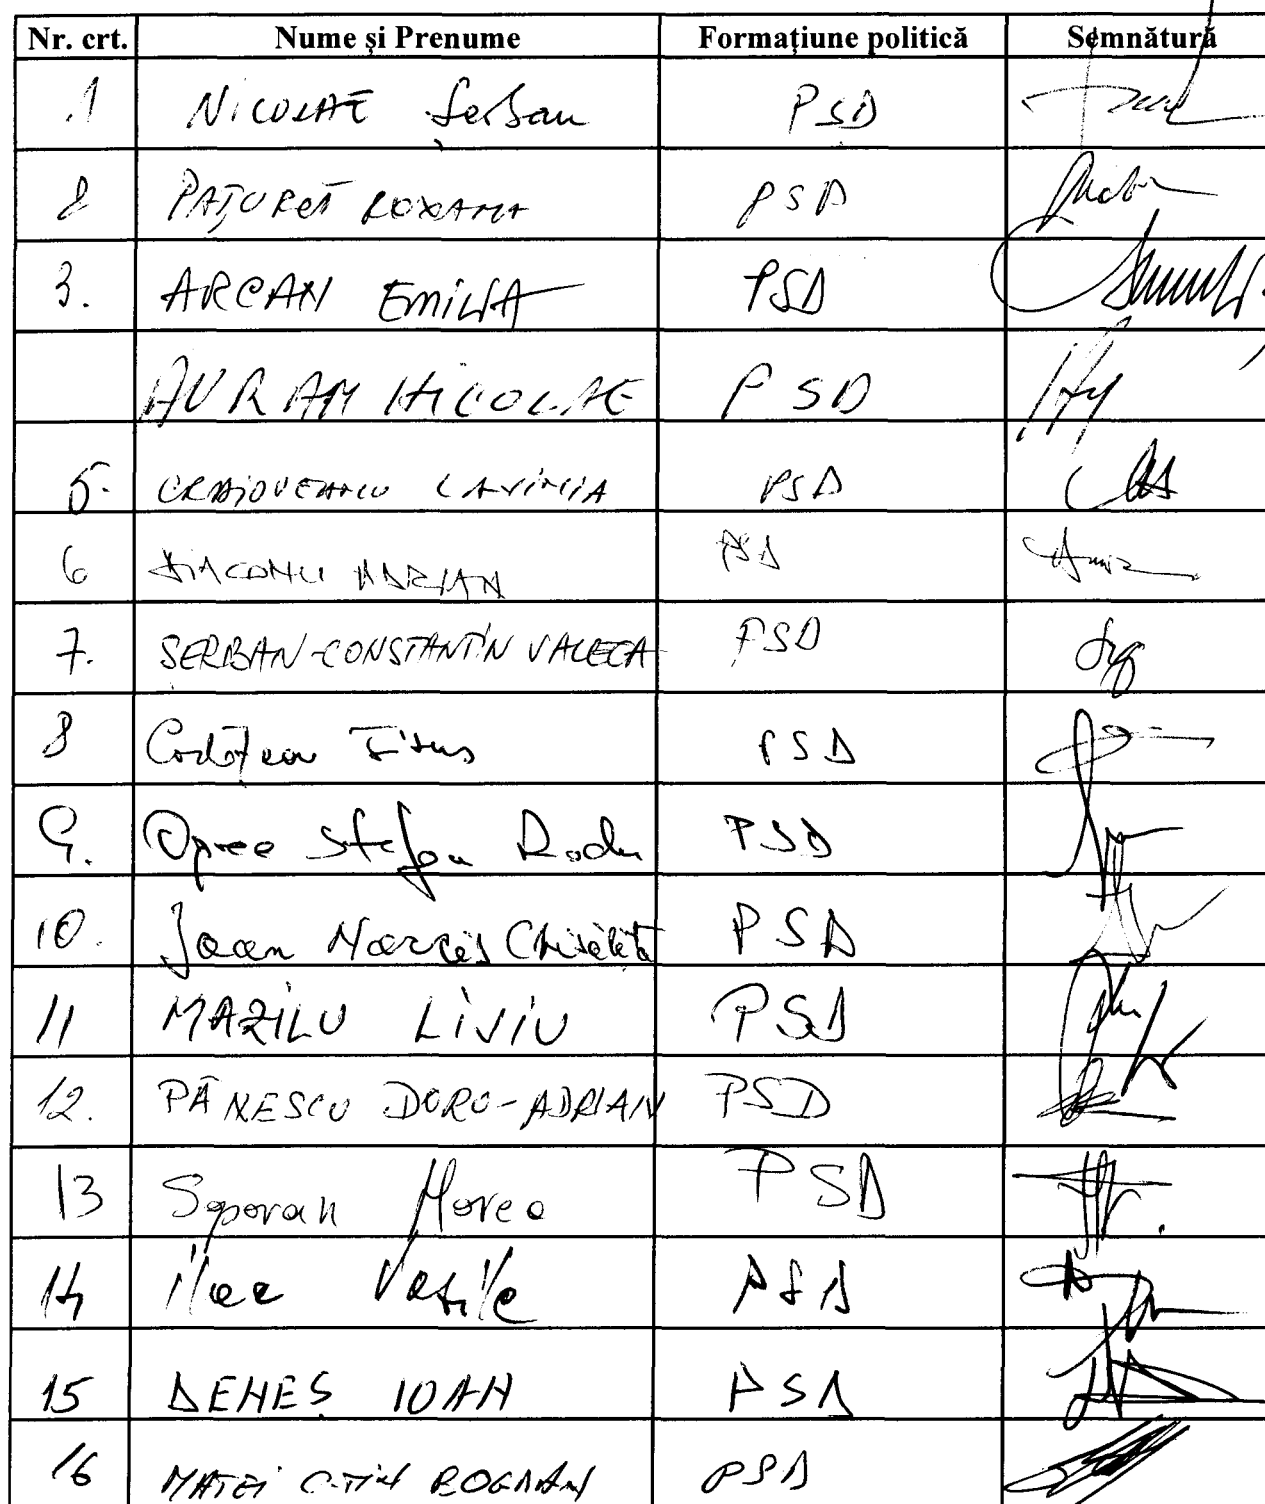 Nr. crt. Nume și Prenume Formațiune politică Semnătură
1 NICOLAE Șerban PSD
2 PAȚUREȚ ROXANA PSD
3. ARCAN EMILIA PSD
AVRAM NICOLAE PSD
5. CRAIOVEANU LAVINIA PSD
6 DIACONU ADRIAN PSD
7. ȘERBAN-CONSTANTIN VALECA PSD
8 Corlățean Titus PSD
9. Oprea Ștefan Radu PSD
10. Ioan Narcis Chisăliță PSD
11 MAZILU LIVIU PSD
12. PĂNESCU DORU-ADRIAN PSD
13 Soporan PSD
14 Ilea Vasile PSD
15 DENEȘ IOAN PSD
16 MATEI C-TIN BOGDAN PSD